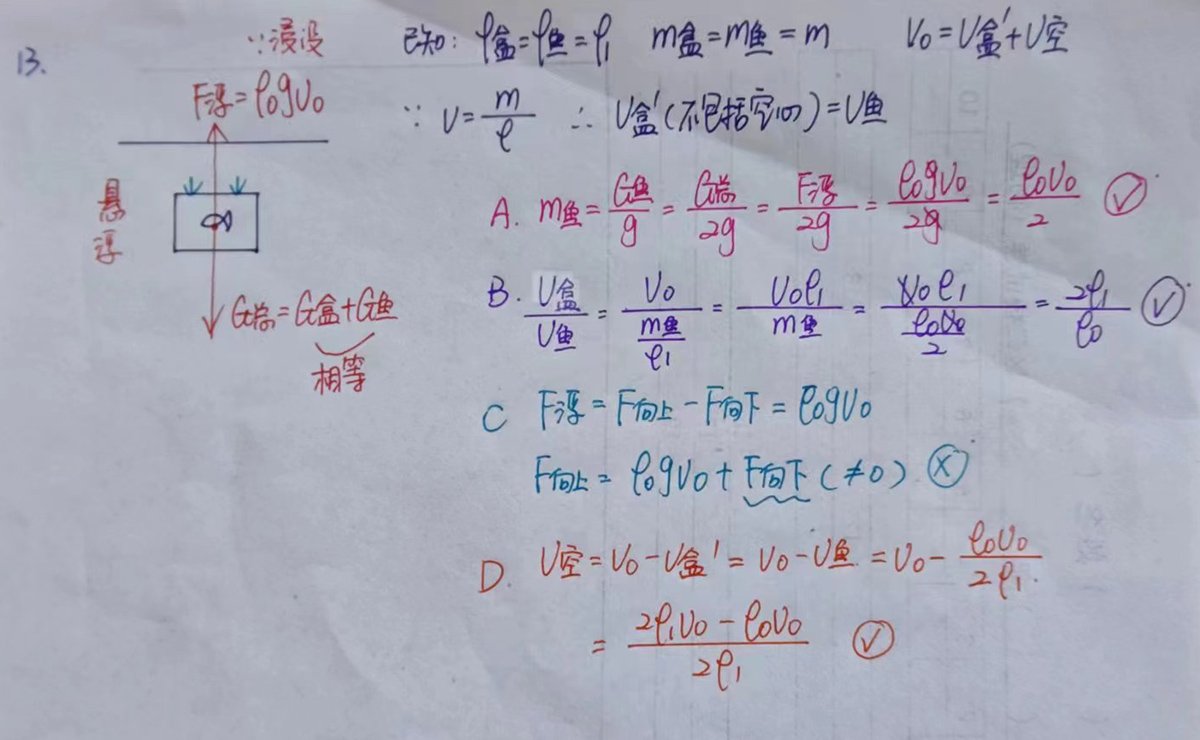 13.
∵浸没
F浮=ρ0gV0
悬浮
G总=G盒+G鱼
相等
已知: ρ盒=ρ鱼=ρ1 m盒=m鱼=m V0=V盒'+V空
∵ V=m/ρ ∴ V盒'(不包括空心)=V鱼
A. m鱼=G鱼/g=G总/2g=F浮/2g=ρ0gV0/2g=ρ0V0/2 ✓
B. V盒/V鱼=V0/(m鱼/ρ1)=V0ρ1/m鱼=V0ρ1/(ρ0V0/2)=2ρ1/ρ0 ✓
C F浮=F向上-F向下=ρ0gV0
F向上=ρ0gV0+F向下(≠0) ×
D. V空=V0-V盒'=V0-V鱼=V0-ρ0V0/2ρ1.
=(2ρ1V0-ρ0V0)/2ρ1 ✓